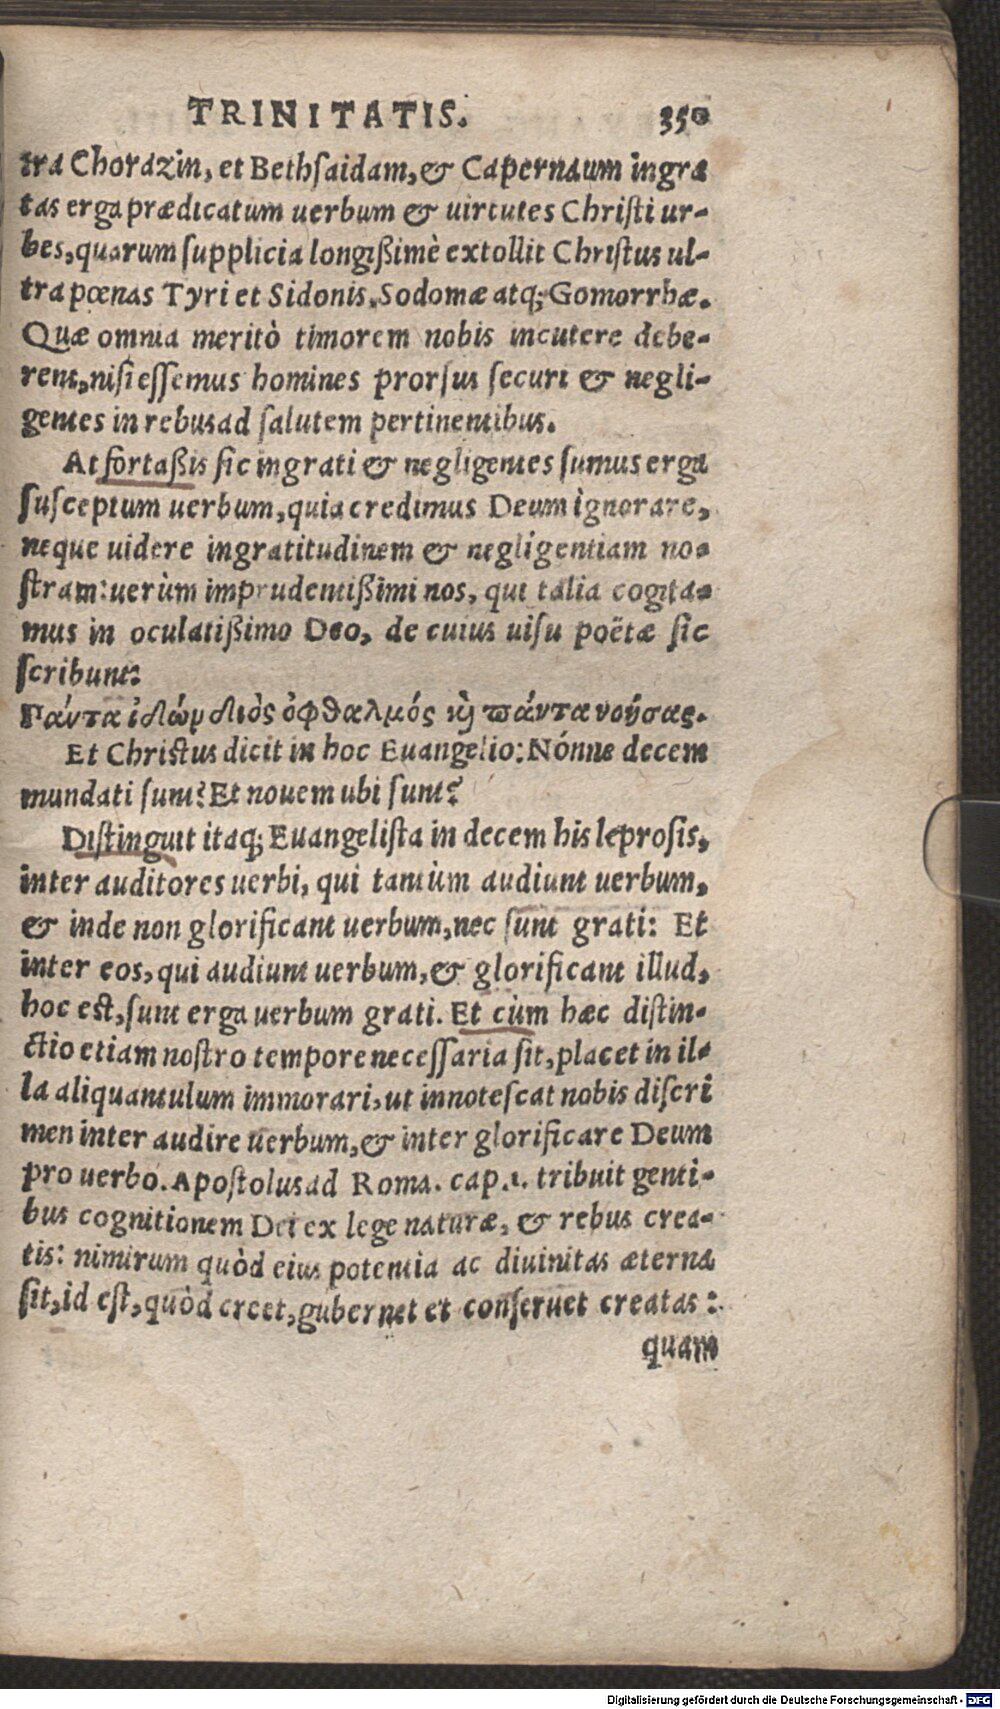 TRINITATIS. 350
tra Chorazin, et Bethsaidam, & Capernaum ingra
tas erga prædicatum uerbum & uirtutes Christi ur-
bes, quarum supplicia longißimè extollit Christus ul-
tra pœnas Tyri et Sidonis, Sodomæ atq; Gomorrhæ.
Quæ omnia meritò timorem nobis incutere debe-
rent, nisi essemus homines prorsus securi & negli-
gentes in rebus ad salutem pertinentibus.
At fortaßis sic ingrati & negligentes sumus erga
susceptum uerbum, quia credimus Deum ignorare,
neque uidere ingratitudinem & negligentiam no-
stram: uerùm imprudentißimi nos, qui talia cogita-
mus in oculatißimo Deo, de cuius uisu poëtæ sic
scribunt:
Πάντα ἰδὼν διὸς ὀφθαλμός καὶ πάντα νοήσας.
Et Christus dicit in hoc Euangelio: Nónne decem
mundati sunt? Et nouem ubi sunt?
Distinguit itaq; Euangelista in decem his leprosis,
inter auditores uerbi, qui tantùm audiunt uerbum,
& inde non glorificant uerbum, nec sunt grati: Et
inter eos, qui audiunt uerbum, & glorificant illud,
hoc est, sunt erga uerbum grati. Et cùm hæc distin-
ctio etiam nostro tempore necessaria sit, placet in il-
la aliquantulum immorari, ut innotescat nobis discri
men inter audire uerbum, & inter glorificare Deum
pro uerbo. Apostolus ad Roma. cap. 1. tribuit genti-
bus cognitionem Dei ex lege naturæ, & rebus crea-
tis: nimirum quòd eius potentia ac diuinitas æterna
sit, id est, quòd creet, gubernet et conseruet creatas:
quam
Digitalisierung gefördert durch die Deutsche Forschungsgemeinschaft - DFG